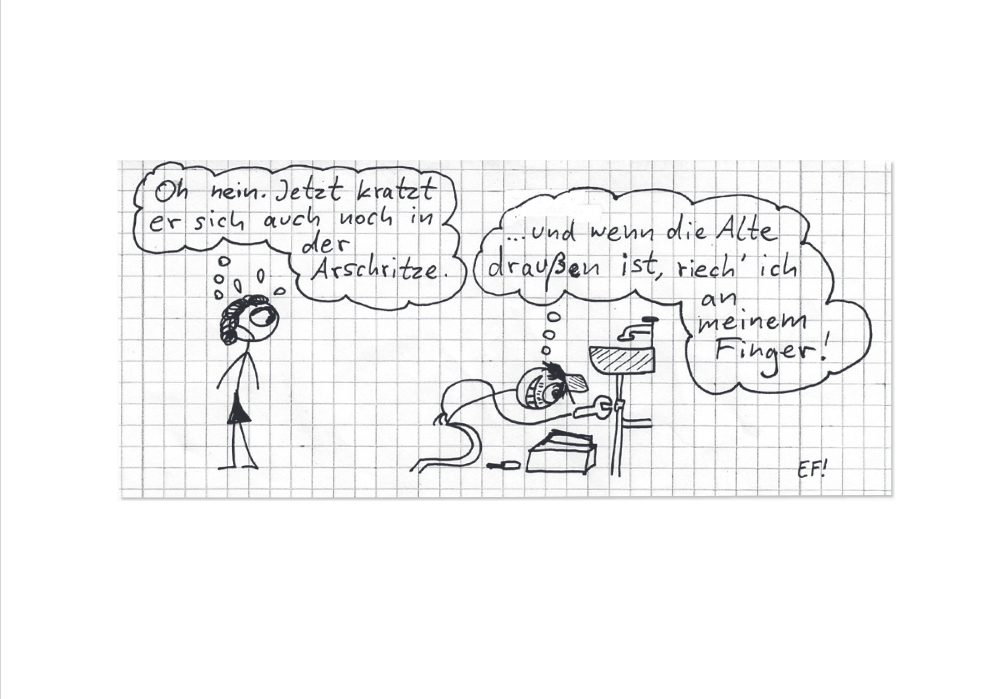 Oh nein. Jetzt kratzt
er sich auch noch in
der
Arschritze.
...und wenn die Alte
draußen ist, riech' ich
an
meinem
Finger!
EF!